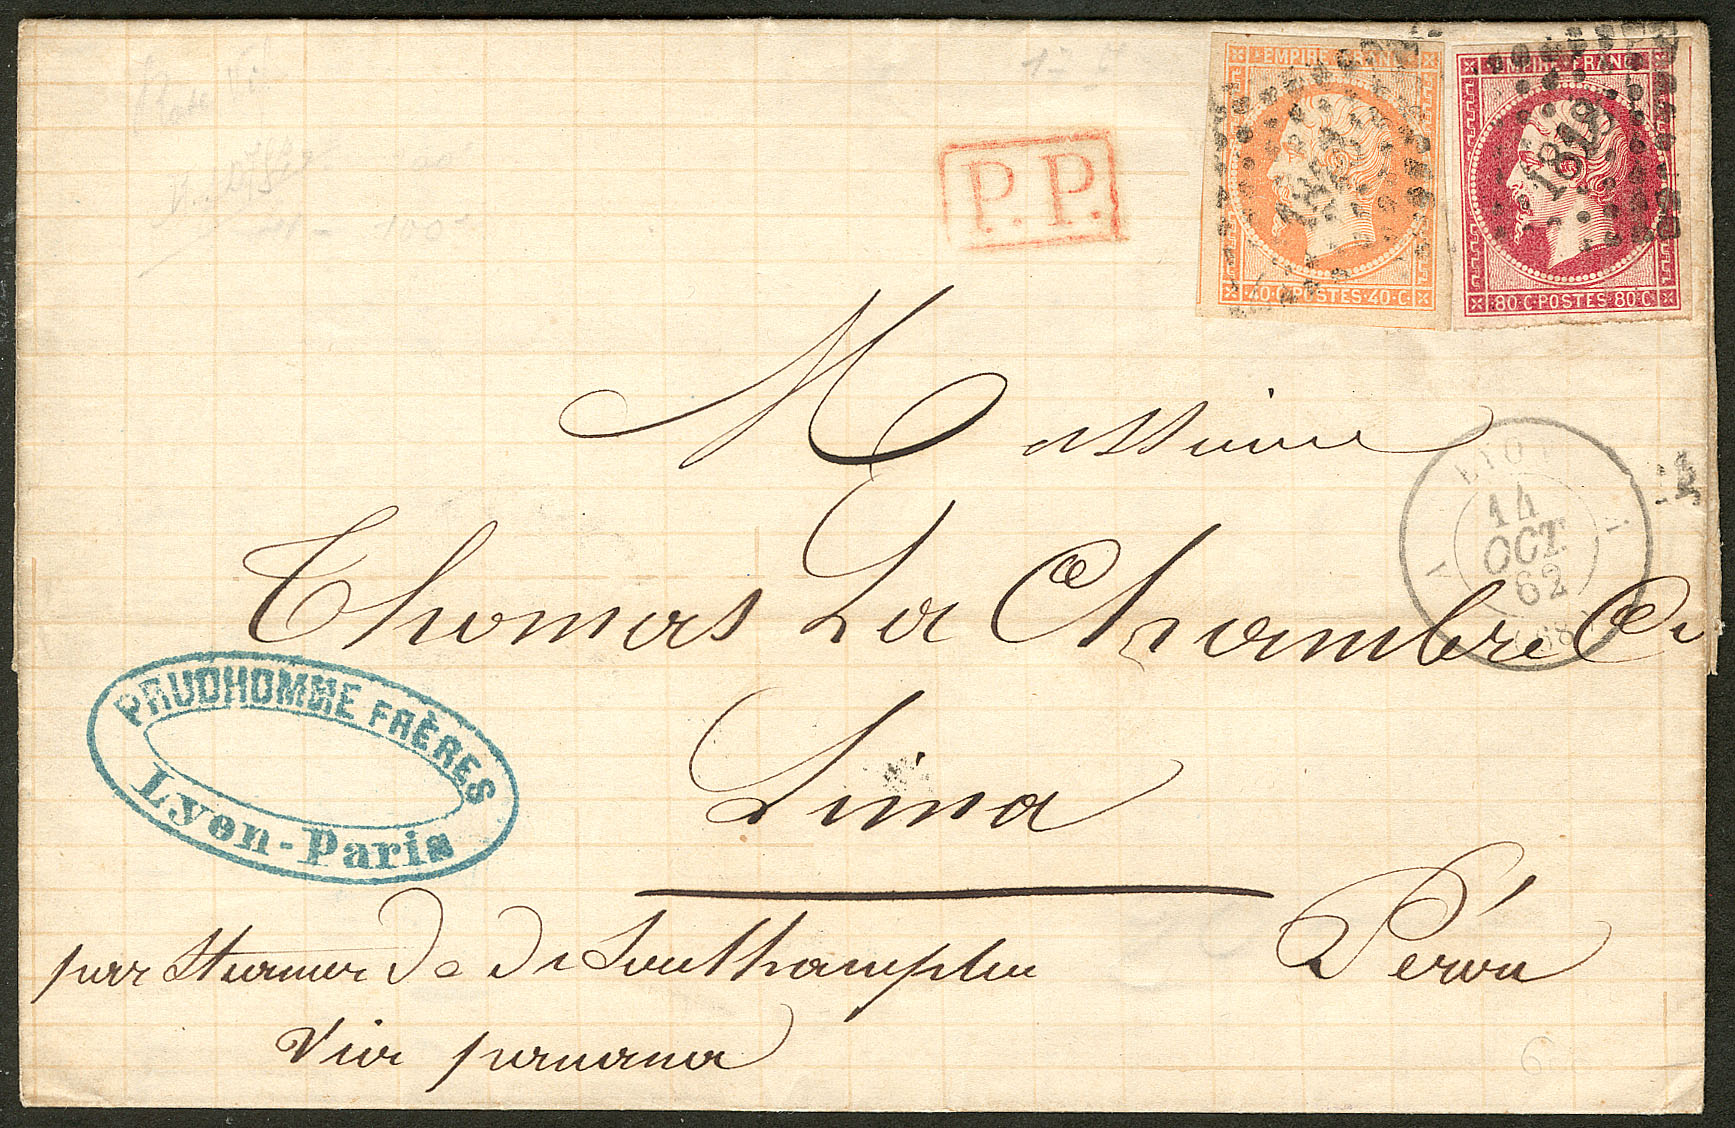 EMPIRE FRANC
1818
40·C·POSTES·40·C·
EMPIRE FRANC
1818
80·C·POSTES·80·C·
P.P.
Monsieur
Thomas La Chambre Ce
LYON
14
OCT.
62
(68)
Lima
PRUDHOMME FRÈRES
Lyon-Paris
Pérou
par Steamer de Southampton
Via panama